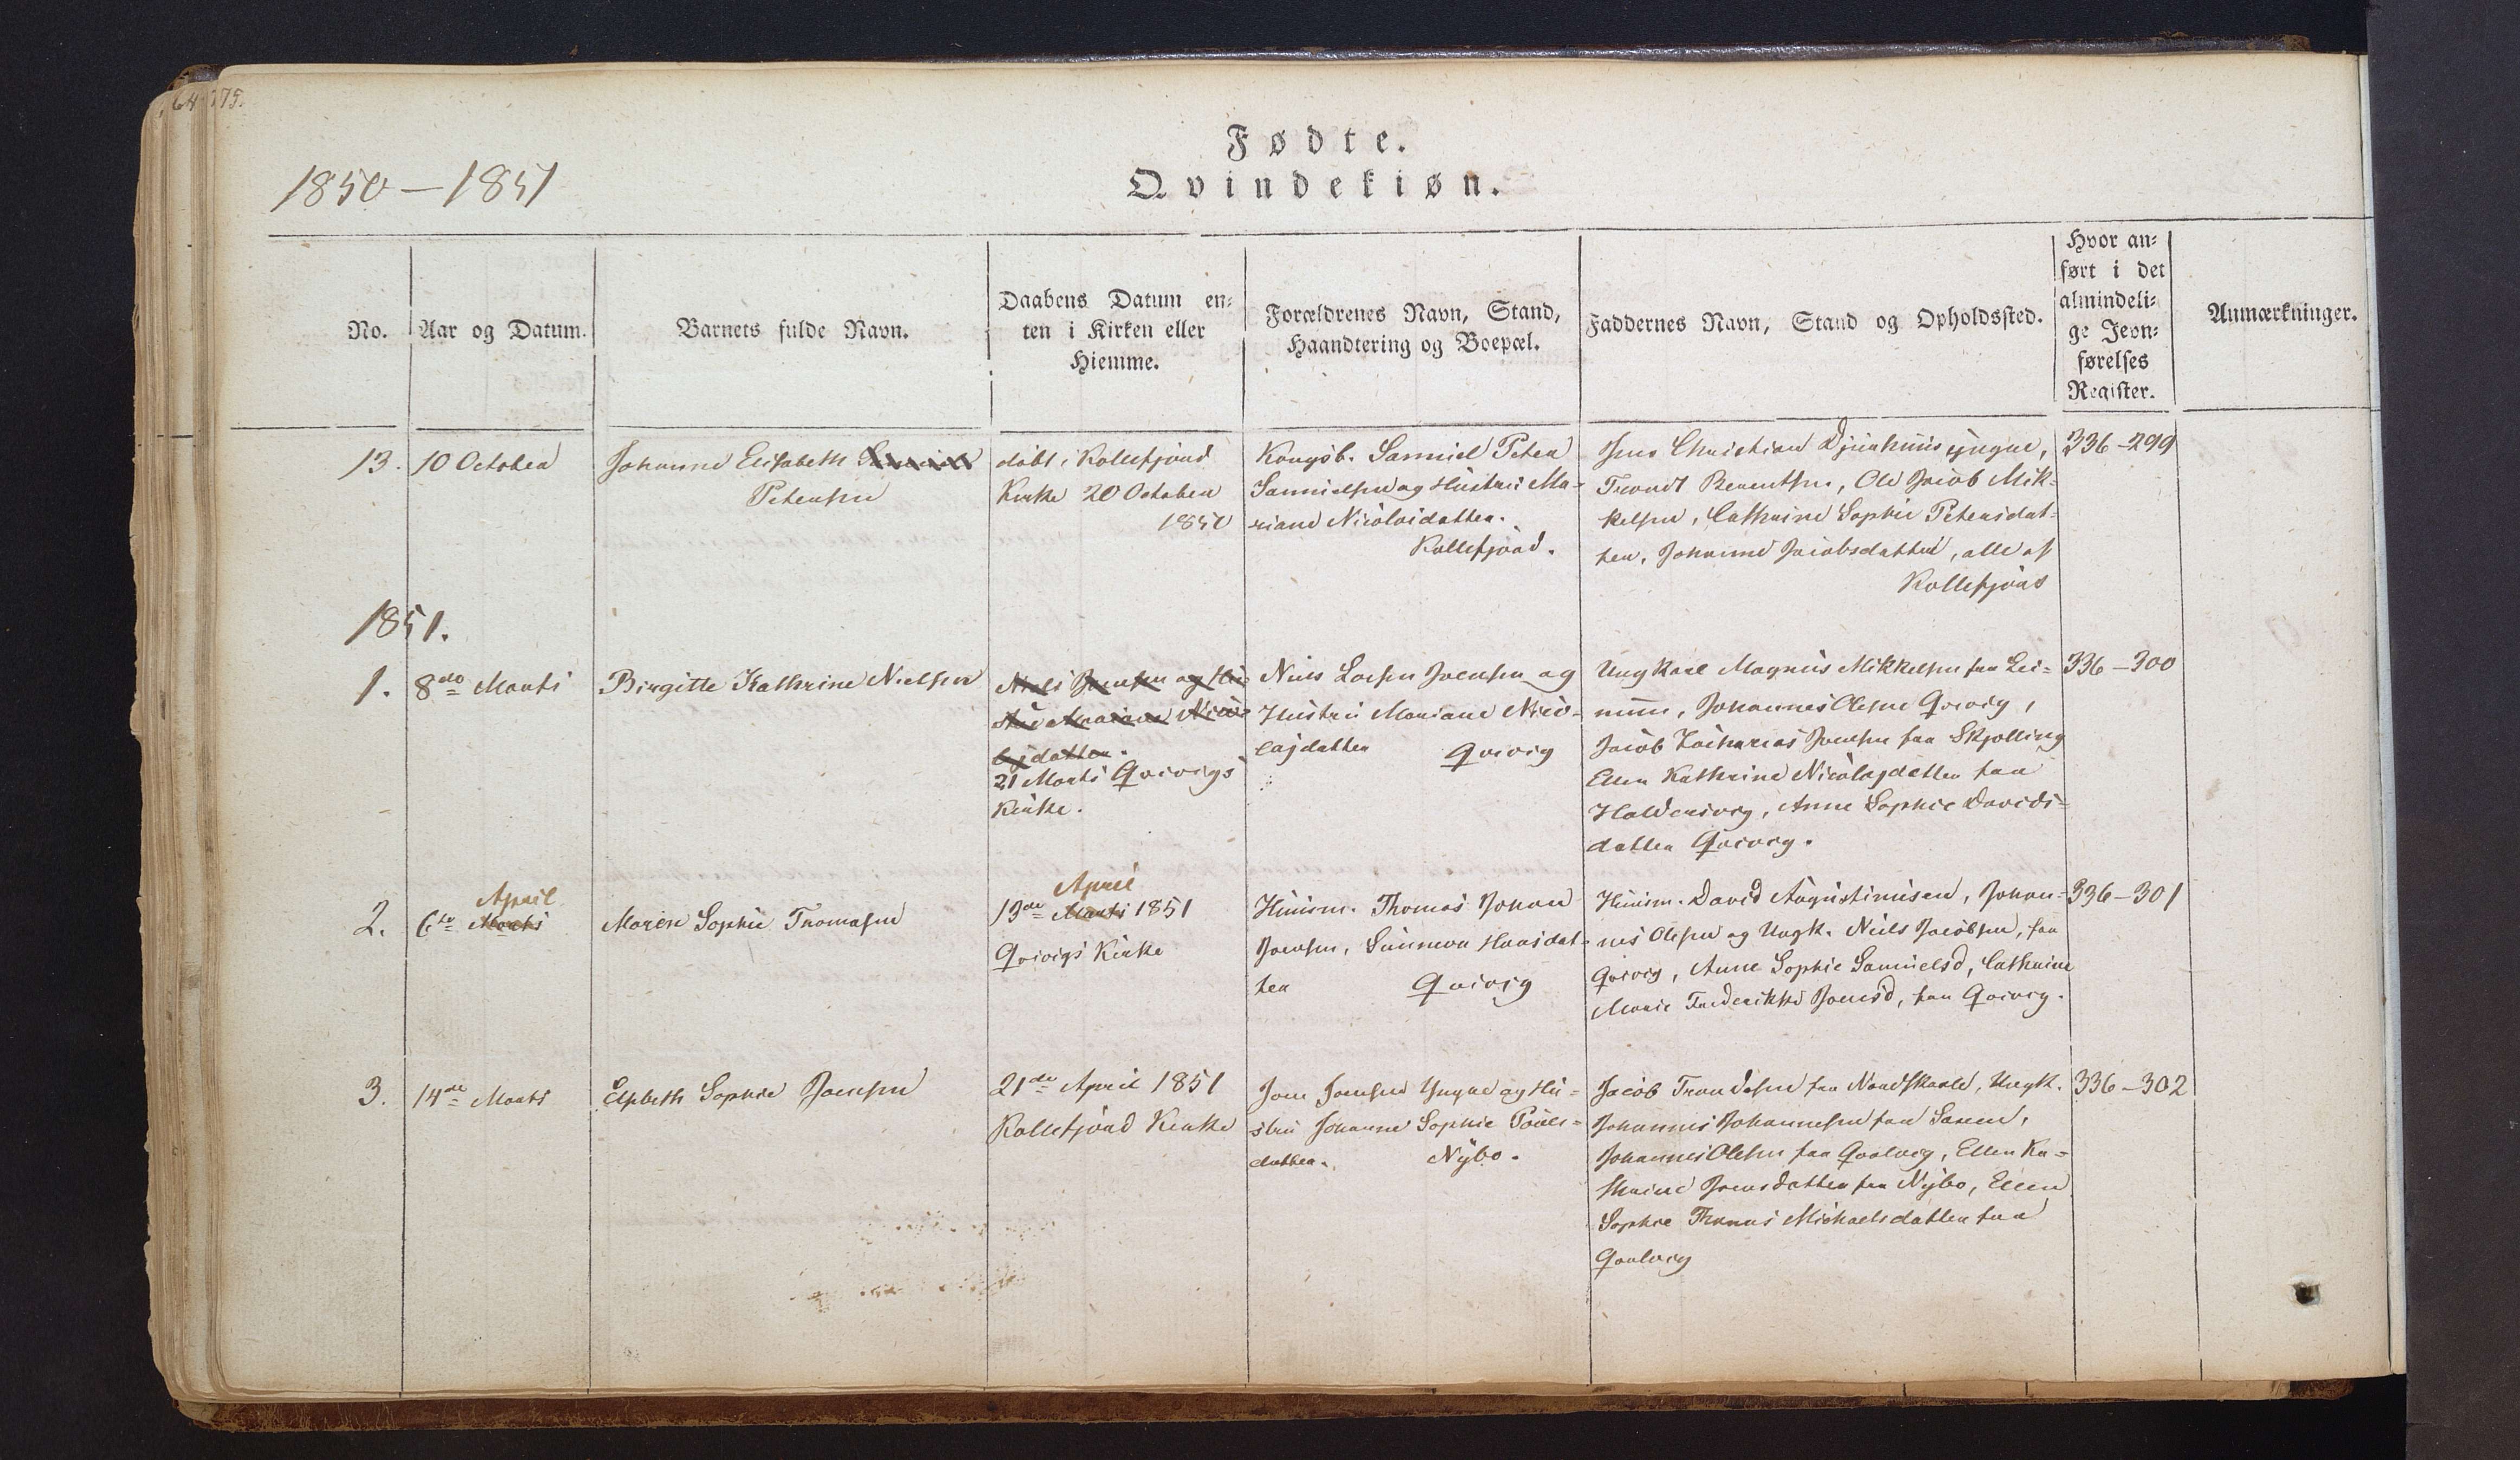 175.
Fødte.
1850–1851
Qvindekiøn.
No.
Aar og Datum.
Barnets fulde Navn.
Daabens Datum en-
ten i Kirken eller
Hiemme.
Forældrenes Navn, Stand,
Haandtering og Boepæl.
Faddernes Navn, Stand og Opholdssted.
Hvor an-
ført i det
almindeli-
ge Jevn-
førelses
Register.
Anmærkninger.
13.
10 October
Johanne Elisabeth
Petersen
döbt i Kollefjord
Kirke 20 October
1850
Kongsb. Samuel Peter
Samuelsen og Hustru Ma-
riane Nicolaidatter.
Kollefjord.
Jens Christian Djurhuus
Trondt Berentsen, Ole Jacob Mik-
kelsen, Cathrine Sophie Petersdat-
ter, Johanne Jacobsdatter, alle af
Kollefjord
336–299
1851.
1.
8de Marts
Birgitte Kathrine Nielsen
Niels Joensen og Hu-
stru Mariane Nico-
lajdatter.
21 Marts Qvivigs
Kirke.
Niels Joensen og
Hustru Mariane Nico-
lajdatter Qvivig
Ungkarl Magnus Mikkelsen fra Lei-
num, Johannes Olesen Qvivig,
Jacob Zacharias Joensen fra Skjælling
Ellen Kathrine Nicolajdatter fra
Haldersvig, Anne Sophie Davids-
datter Qvivig.
336–300
2.
April
6te Marts
Maren Sophie Thomasen
April
13de Marts 1851
Qvivigs Kirke
Huusm. Thomas Johan
Joensen, Sunneva Hansdat-
ter Qvivig
Huusm. David Augustinusen, Johan-
nes Olesen og Ungk. Niels Jacobsen, fra
Qvivig, Anne Sophie Samuelsd, Cathrine
Marie Frederikke Joensd, fra Qvivig.
336–301
3.
14de Marts
Elsbeth Sophie Joensen
21de April 1851
Kollefjord Kirke
Joen Joensen Yngre og Hu-
stru Johanne Sophie Pouls-
datter. Nÿbo.
Jacob Trondesen fra Nordskaale, Ungk.
Johannes Johannesen fra Saxen,
Johannes Olesen fra Qvalvig, Ellen Ka-
thrine Joensdatter fra Nÿbo, Ellen
Sophie Michaelsdatter fra
Qvalvig
336–302